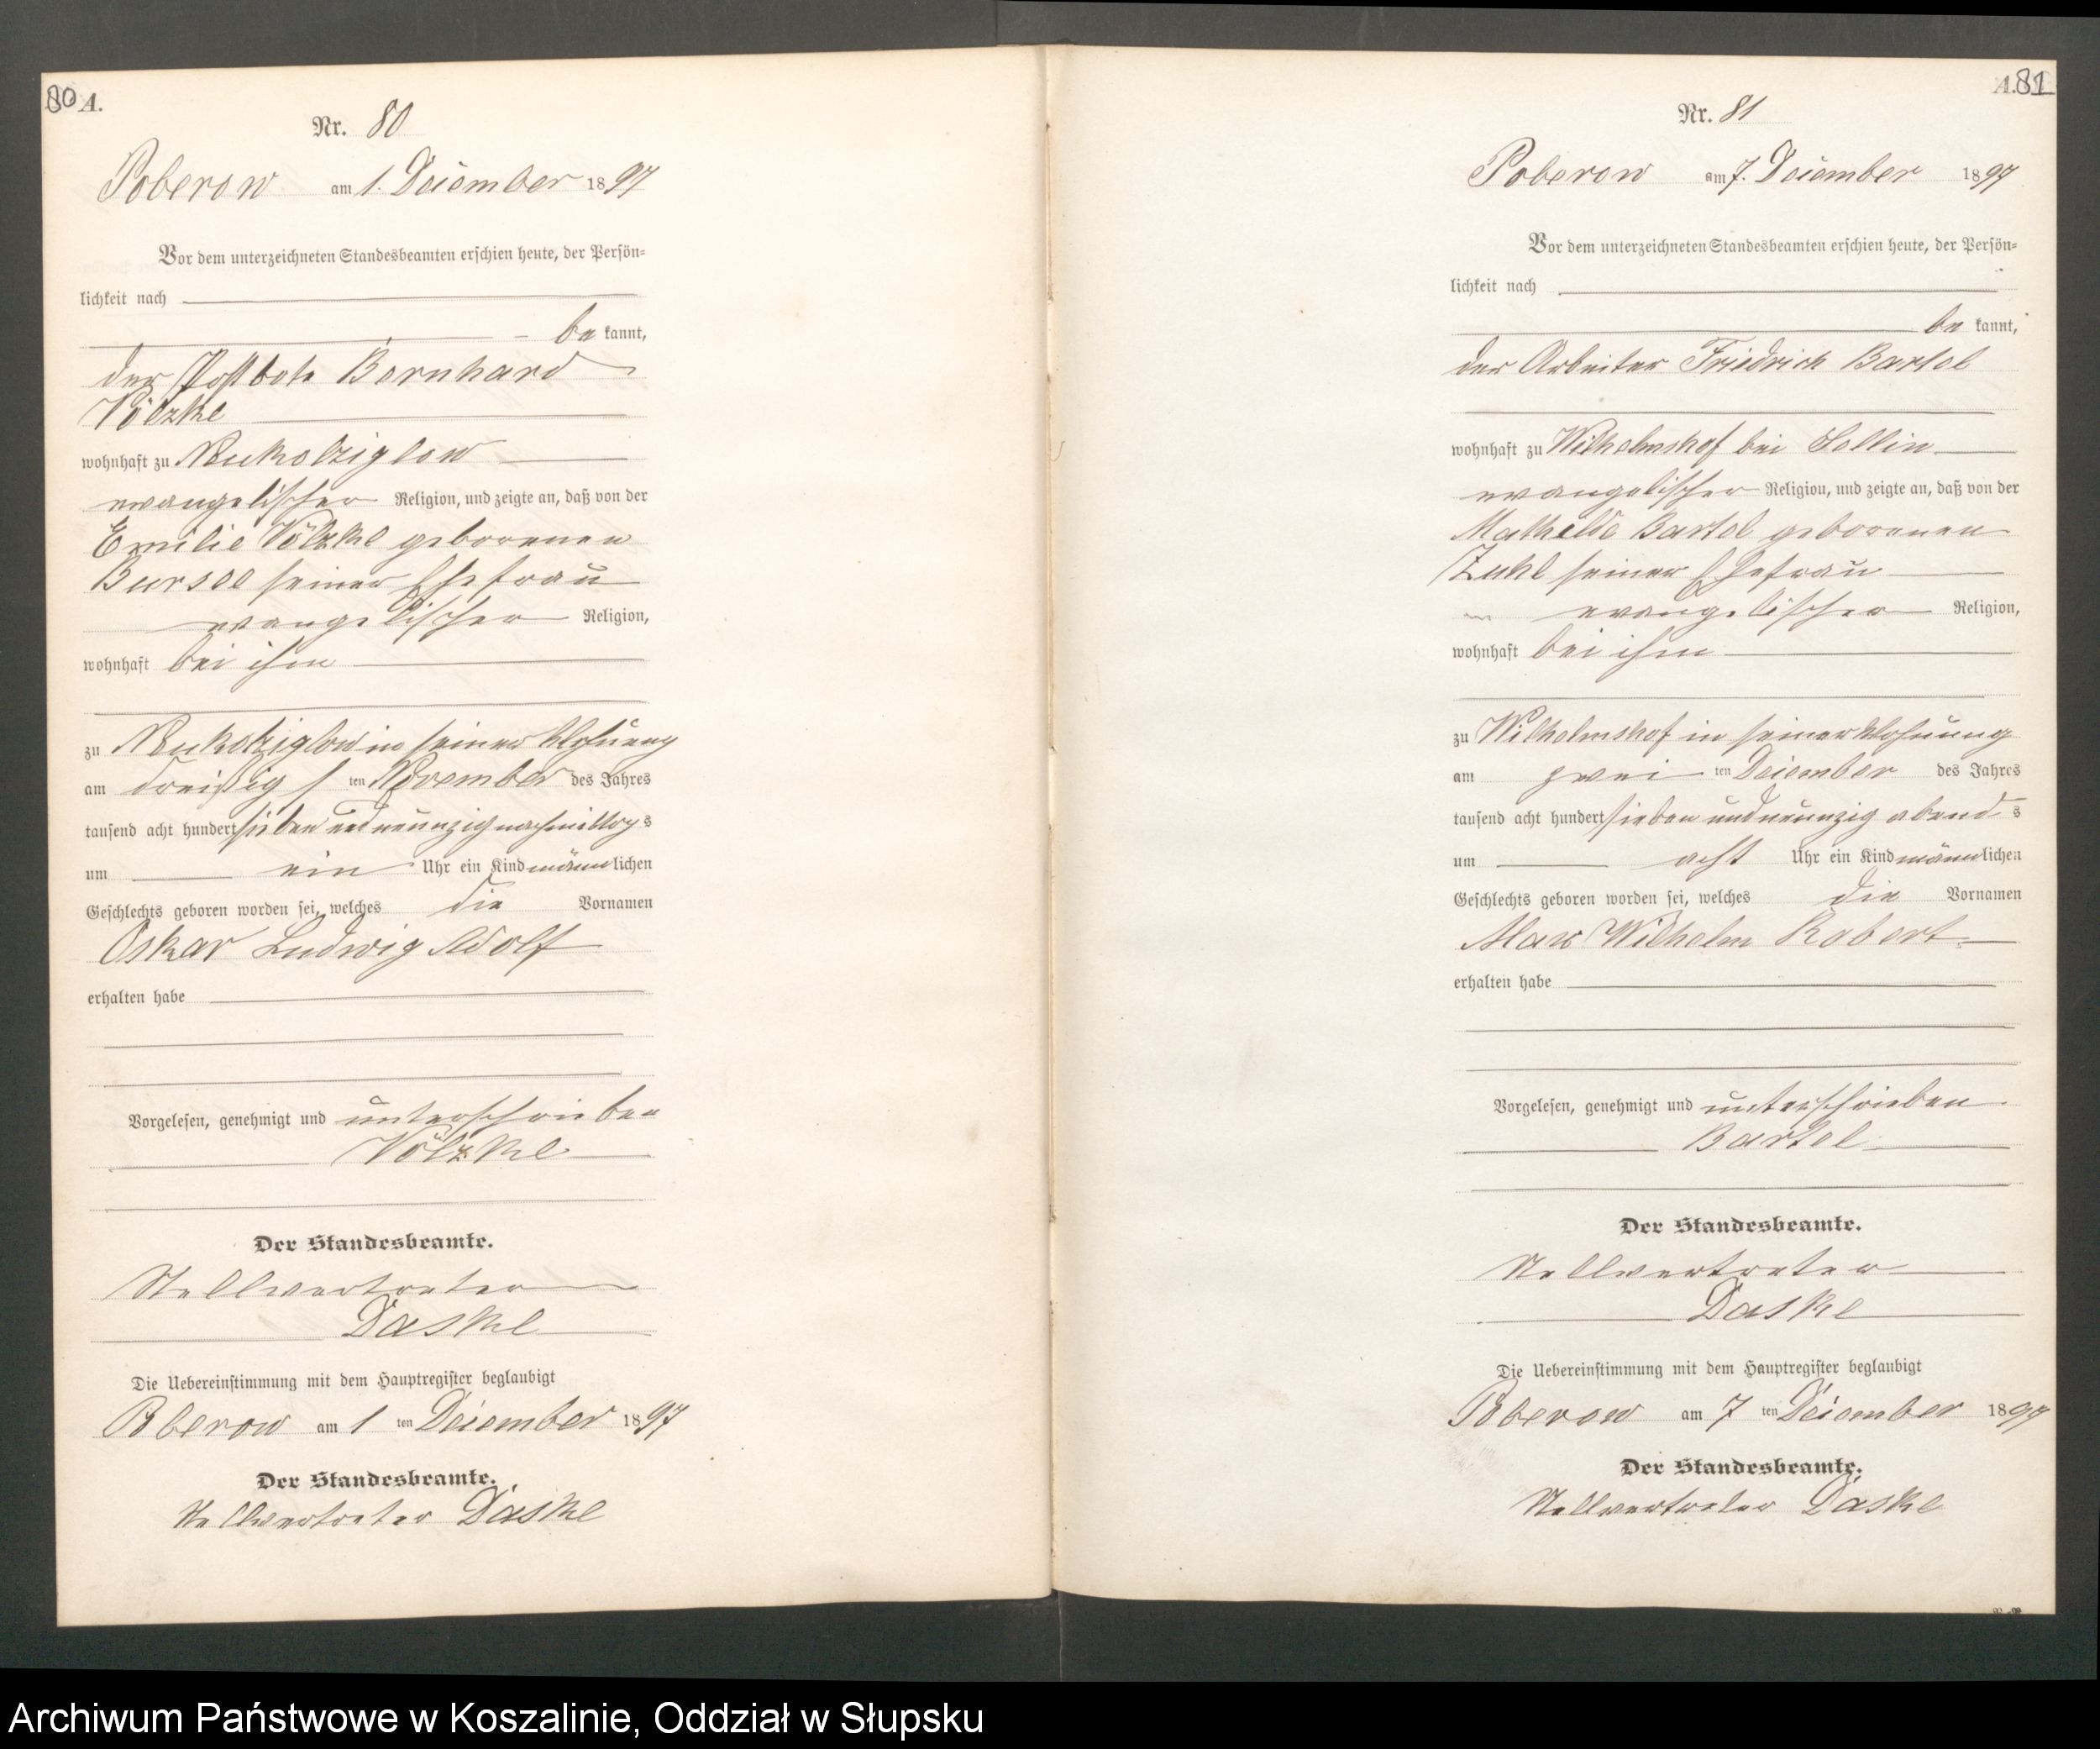 80 A.
Nr. 80
Poberow am 1. December 1897
Vor dem unterzeichneten Standesbeamten erschien heute, der Persön=
lichkeit nach
be kannt,
der Postbote Bernhard
Völzke
wohnhaft zu Neukolziglow
evangelischer Religion, und zeigte an, daß von der
Emilie Völzke geborenen
seiner Ehefrau
evangelischer Religion,
wohnhaft bei ihm
zu Neukolziglow in seiner Wohnung
am dreißig s ten November des Jahres
tausend acht hundert sieben und neunzig nachmittag s
um ein Uhr ein Kind männlichen
Geschlechts geboren worden sei, welches die Vornamen
Oskar Ludwig Adolf
erhalten habe
Vorgelesen, genehmigt und unterschrieben
Völzke
Der Standesbeamte.
Stellvertreter
Daske
Die Uebereinstimmung mit dem Hauptregister beglaubigt
Poberow am 1 ten December 1897
Der Standesbeamte.
Stellvertreter Daske
A. 81
Nr. 81
Poberow am 7. December 1897
Vor dem unterzeichneten Standesbeamten erschien heute, der Persön=
lichkeit nach
be kannt,
der Arbeiter Friedrich Bartel
wohnhaft zu Wilhelmshof bei Sellin
evangelischer Religion, und zeigte an, daß von der
Mathilde Bartel geborenen
Zuhl seiner Ehefrau
evangelischer Religion,
wohnhaft bei ihm
zu Wilhelmshof in seiner Wohnung
am zwei ten December des Jahres
tausend acht hundert sieben und neunzig abend s
um acht Uhr ein Kind männlichen
Geschlechts geboren worden sei, welches die Vornamen
Max Wilhelm Robert
erhalten habe
Vorgelesen, genehmigt und unterschrieben
Bartel
Der Standesbeamte.
Stellvertreter
Daske
Die Uebereinstimmung mit dem Hauptregister beglaubigt
Poberow am 7 ten December 1897
Der Standesbeamte.
Stellvertreter Daske
Archiwum Państwowe w Koszalinie, Oddział w Słupsku